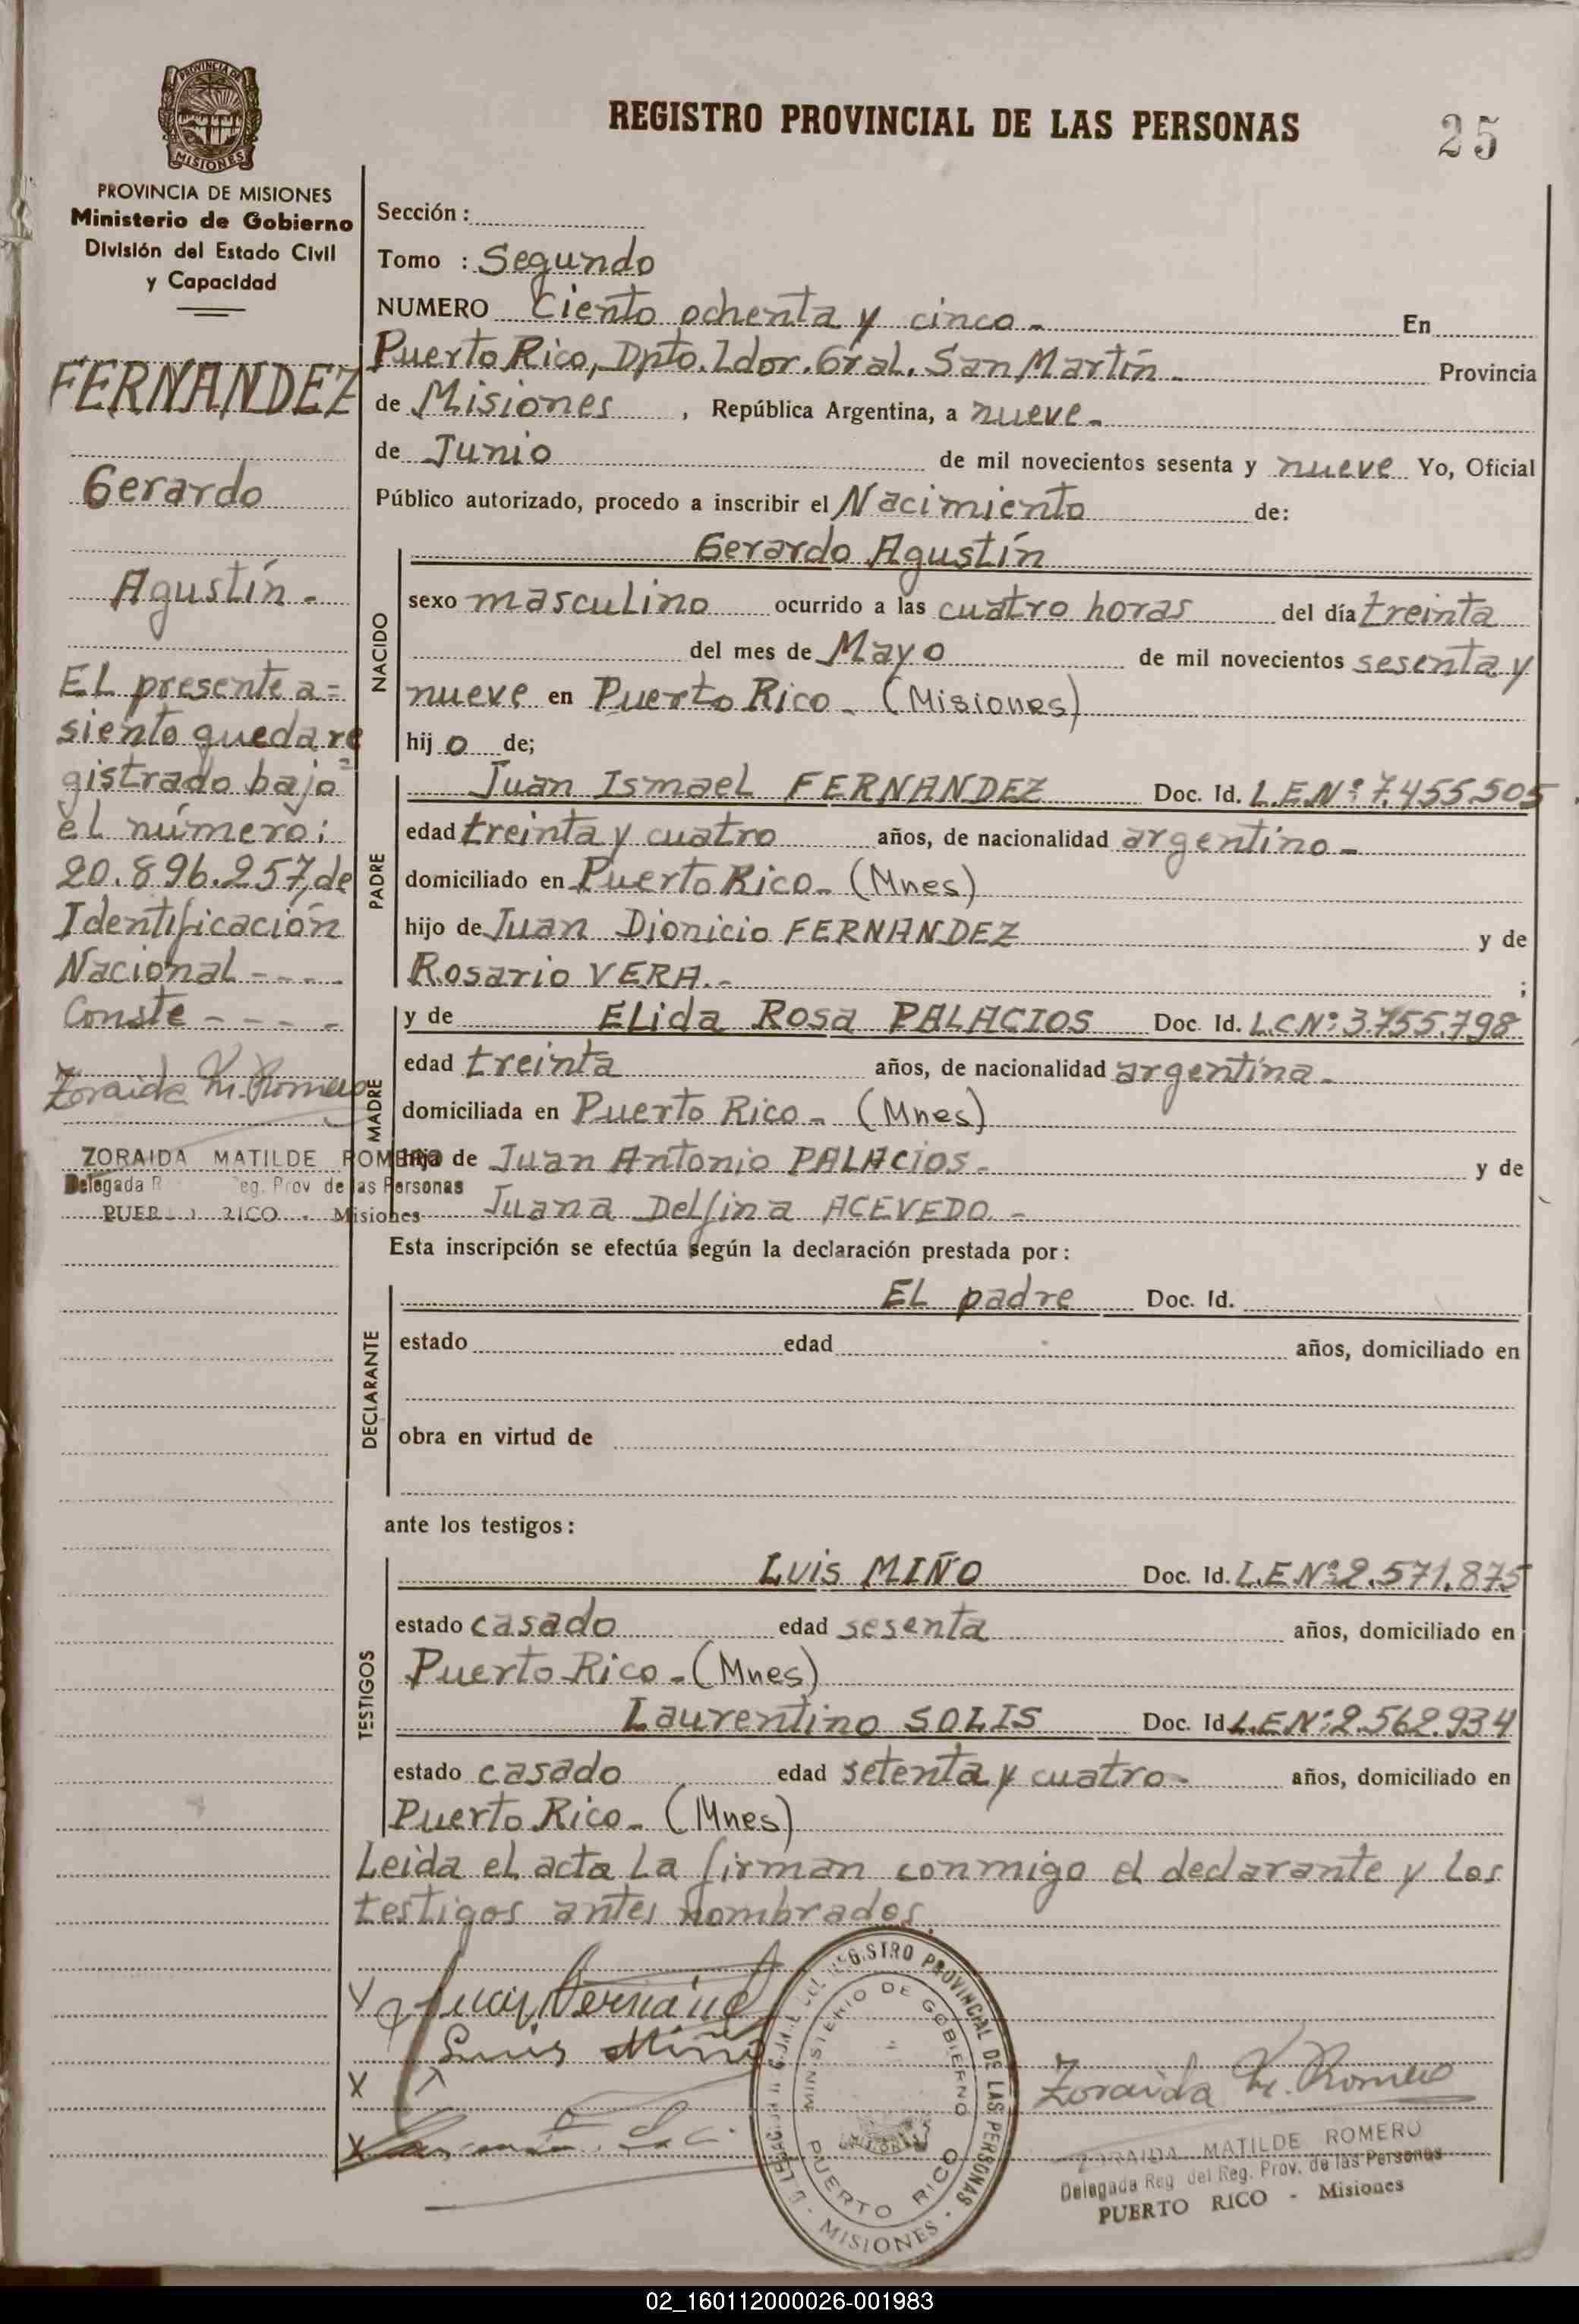 REGISTRO PROVINCIAL DE LAS PERSONAS
25
PROVINCIA DE
MISIONES
PROVINCIA DE MISIONES
Ministerio de Gobierno
División del Estado Civil
y Capacidad
FERNANDEZ
Gerardo
Agustín -
El presente a=
siento queda re
gistrado bajo
el número:
20.896.257, de
Identificación
Nacional - - - -
Conste - - - -
Zoraida M. Romero
ZORAIDA MATILDE ROMERO
Delegada R eg. Prov de las Personas
PUER O RICO - Misiones
Sección :
Tomo : Segundo
NUMERO Ciento ochenta y cinco - En
Puerto Rico, Dpto. Ldor. Gral. San Martín - Provincia
de Misiones , República Argentina, a nueve -
de Junio de mil novecientos sesenta y nueve Yo, Oficial
Público autorizado, procedo a inscribir el Nacimiento de:
NACIDO
Gerardo Agustín
sexo masculino ocurrido a las cuatro horas del día treinta
del mes de Mayo de mil novecientos sesenta y
nueve en Puerto Rico - (Misiones)
hij o de;
PADRE
Juan Ismael FERNANDEZ Doc. Id. L.E.Nº 7.455.505
edad treinta y cuatro años, de nacionalidad argentino -
domiciliado en Puerto Rico - (Mnes)
hijo de Juan Dionicio FERNANDEZ y de
Rosario VERA. - ;
MADRE
y de Elida Rosa PALACIOS Doc. Id. L.C Nº 3.755.798
edad treinta años, de nacionalidad argentina -
domiciliada en Puerto Rico - (Mnes)
hija de Juan Antonio PALACIOS - y de
Juana Delfina ACEVEDO -
Esta inscripción se efectúa según la declaración prestada por :
DECLARANTE
El padre Doc. Id.
estado edad años, domiciliado en
obra en virtud de
ante los testigos :
TESTIGOS
Luis MIÑO Doc. Id. L.E Nº 2.571.875
estado casado edad sesenta años, domiciliado en
Puerto Rico - (Mnes)
Laurentino SOLIS Doc. Id L.E Nº 2.562.934
estado casado edad setenta y cuatro - años, domiciliado en
Puerto Rico - (Mnes)
Leida el acta la firman conmigo el declarante y los
testigos antes nombrados.
X
Luis Miño
X
X
REGISTRO PROVINCIAL DE LAS PERSONAS
MINISTERIO DE GOBIERNO
PUERTO RICO
- MISIONES -
Zoraida M. Romero
ZORAIDA MATILDE ROMERO
Delegada Reg del Reg. Prov. de las Personas
PUERTO RICO - Misiones
02_160112000026-001983